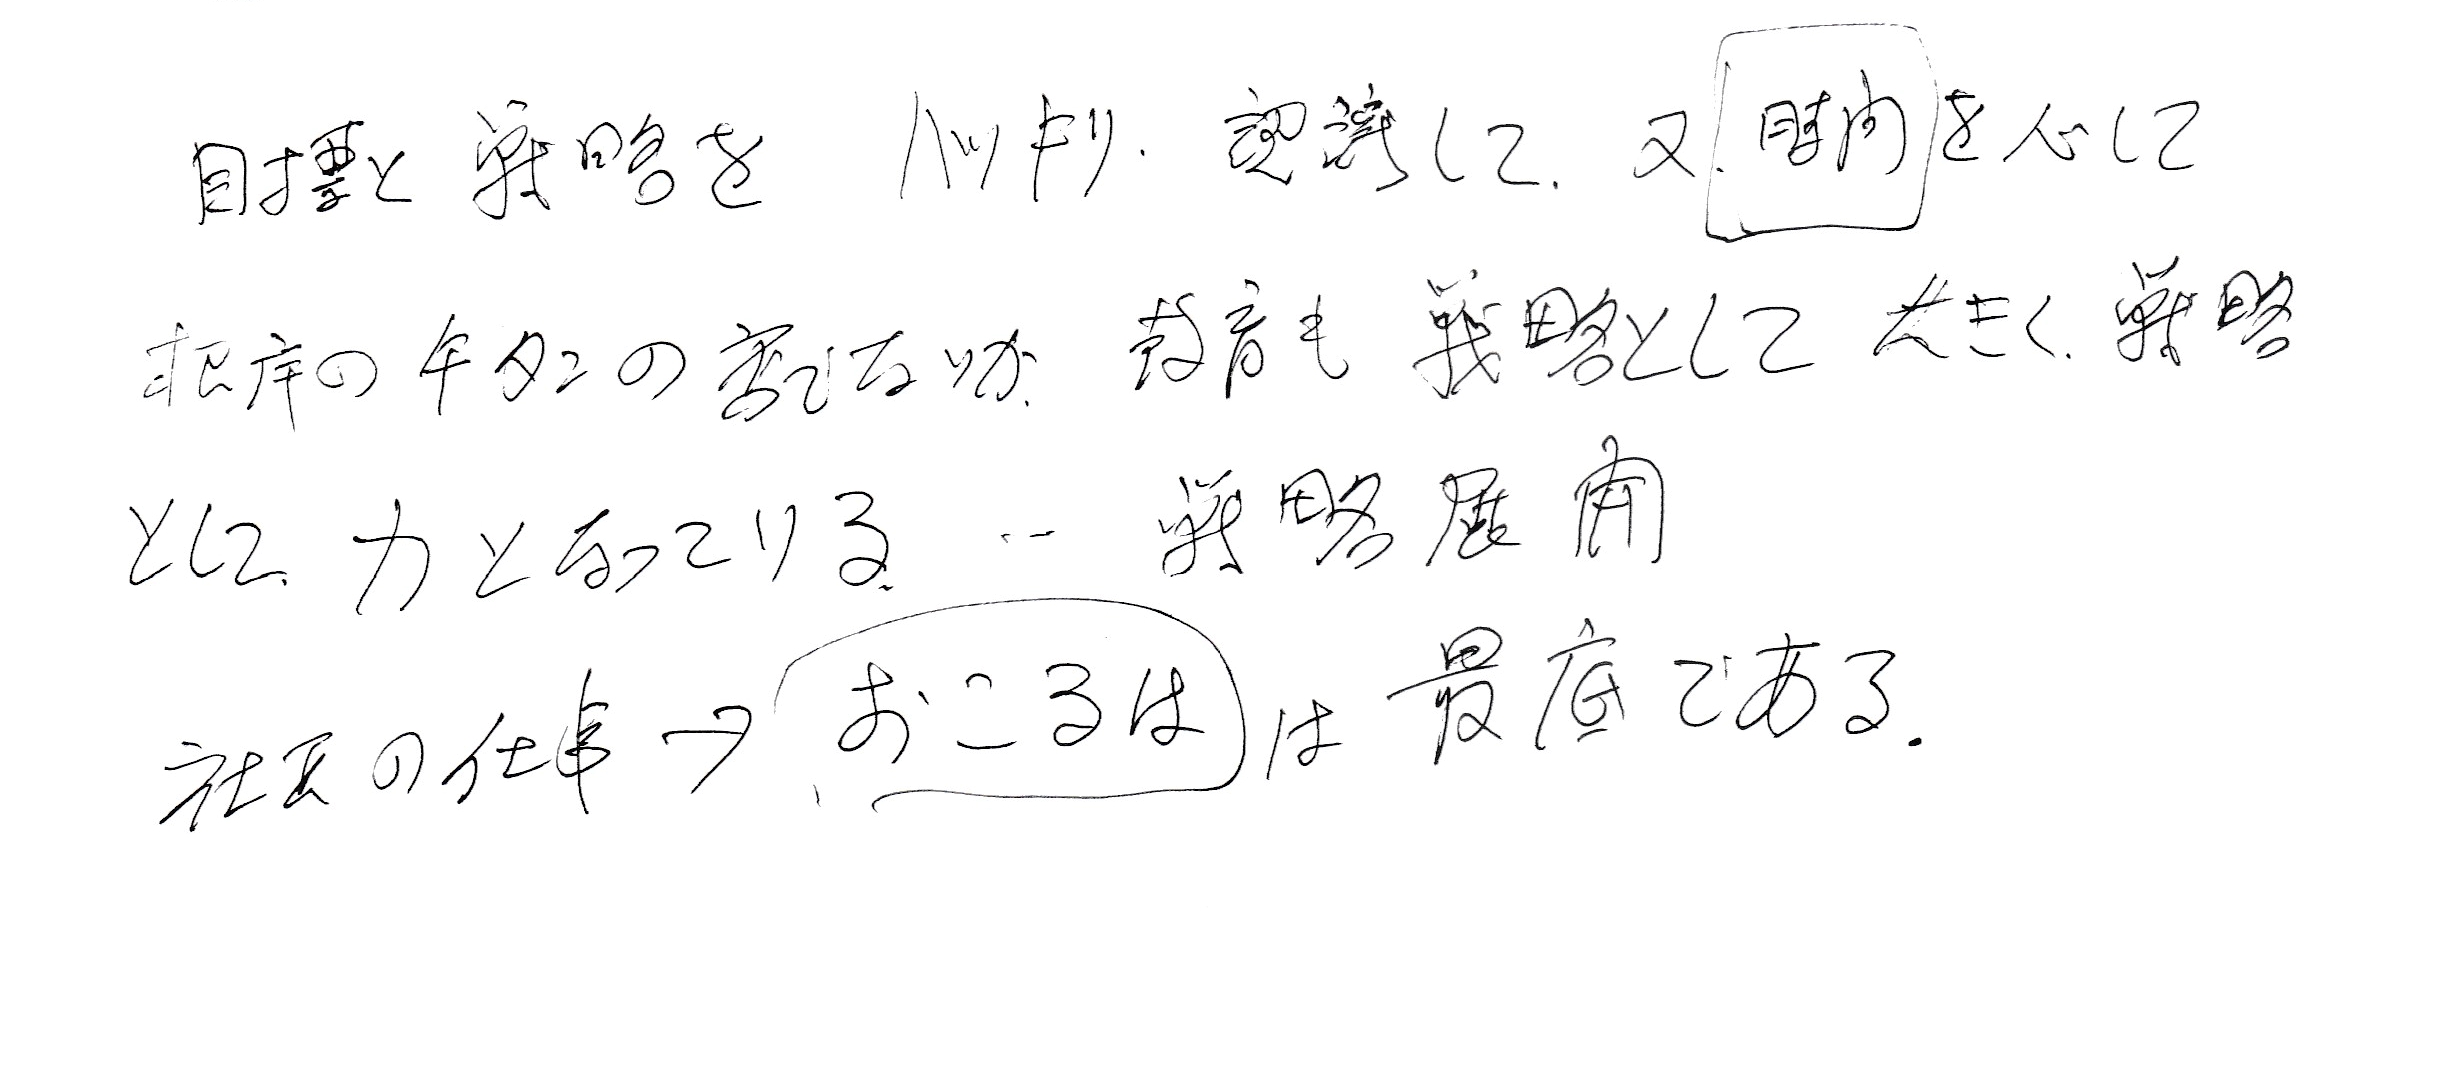 目標と戦略を ハッキリ. 認識して. 又. 時間を心して
根岸の 教育も 戦略として 大きく. 戦略
として. 力となっている. … 戦略展開
社長の仕事→ おこるは は 最底である.